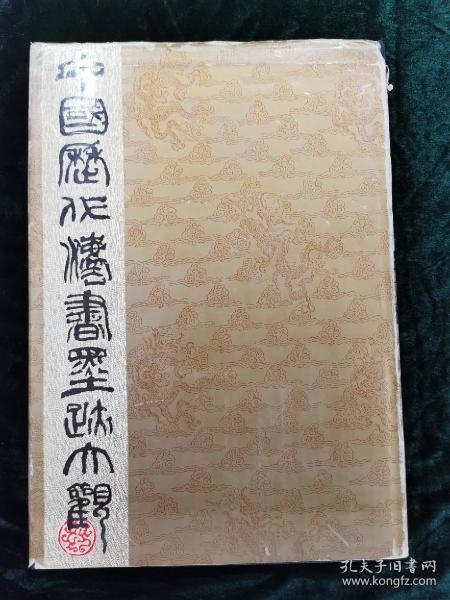 中國歷代法書墨跡大觀
孔夫子旧书网
www.kongfz.com